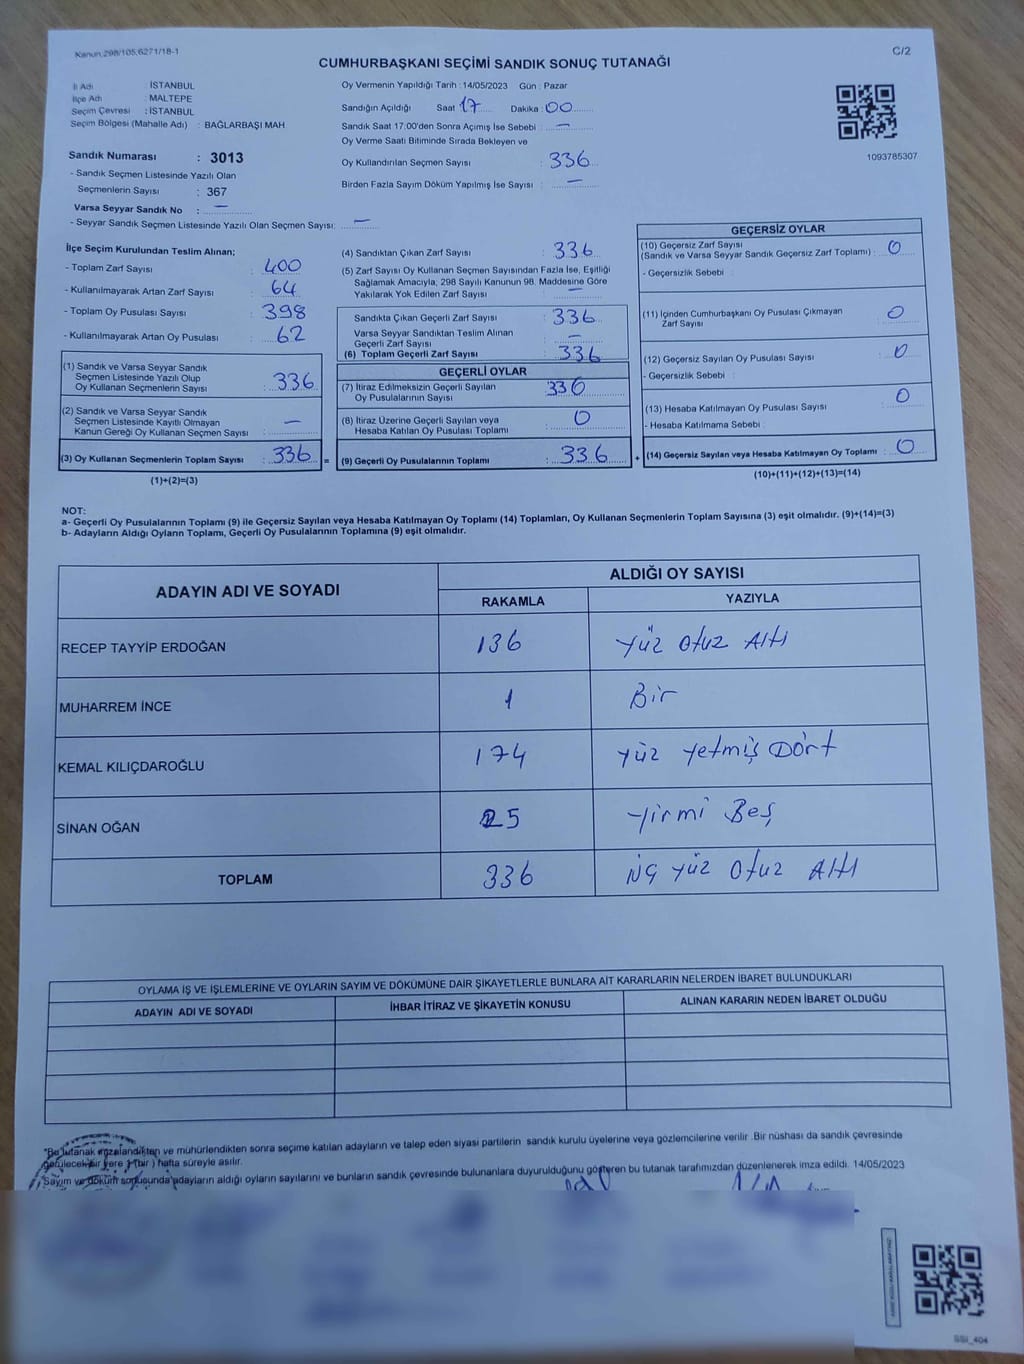 Kanun:298/105,6271/18-1
C/2
CUMHURBAŞKANI SEÇİMİ SANDIK SONUÇ TUTANAĞI
İl Adı : İSTANBUL
İlçe Adı : MALTEPE
Seçim Çevresi : İSTANBUL
Seçim Bölgesi (Mahalle Adı) : BAĞLARBAŞI MAH.
Sandık Numarası : 3013
- Sandık Seçmen Listesinde Yazılı Olan
Seçmenlerin Sayısı : 367
Varsa Seyyar Sandık No : —
- Seyyar Sandık Seçmen Listesinde Yazılı Olan Seçmen Sayısı: —
Oy Vermenin Yapıldığı Tarih : 14/05/2023 Gün : Pazar
Sandığın Açıldığı Saat 17 Dakika : 00
Sandık Saat 17:00'den Sonra Açımış İse Sebebi : —
Oy Verme Saati Bitiminde Sırada Bekleyen ve
Oy Kullandırılan Seçmen Sayısı : 336
Birden Fazla Sayım Döküm Yapılmış İse Sayısı : —
1093785307
İlçe Seçim Kurulundan Teslim Alınan;
- Toplam Zarf Sayısı : 400
- Kullanılmayarak Artan Zarf Sayısı : 64
- Toplam Oy Pusulası Sayısı : 398
- Kullanılmayarak Artan Oy Pusulası : 62
(1) Sandık ve Varsa Seyyar Sandık
Seçmen Listesinde Yazılı Olup
Oy Kullanan Seçmenlerin Sayısı : 336
(2) Sandık ve Varsa Seyyar Sandık
Seçmen Listesinde Kayıtlı Olmayan
Kanun Gereği Oy Kullanan Seçmen Sayısı : —
(3) Oy Kullanan Seçmenlerin Toplam Sayısı : 336 =
(1)+(2)=(3)
(4) Sandıktan Çıkan Zarf Sayısı : 336
(5) Zarf Sayısı Oy Kullanan Seçmen Sayısından Fazla İse, Eşitliği
Sağlamak Amacıyla, 298 Sayılı Kanunun 98. Maddesine Göre
Yakılarak Yok Edilen Zarf Sayısı : —
Sandıkta Çıkan Geçerli Zarf Sayısı : 336
Varsa Seyyar Sandıktan Teslim Alınan
Geçerli Zarf Sayısı : —
(6) Toplam Geçerli Zarf Sayısı : 336
GEÇERLİ OYLAR
(7) İtiraz Edilmeksizin Geçerli Sayılan
Oy Pusulalarının Sayısı : 336
(8) İtiraz Üzerine Geçerli Sayılan veya
Hesaba Katılan Oy Pusulası Toplamı : 0
(9) Geçerli Oy Pusulalarının Toplamı : 336 +
GEÇERSİZ OYLAR
(10) Geçersiz Zarf Sayısı
(Sandık ve Varsa Seyyar Sandık Geçersiz Zarf Toplamı) : 0
- Geçersizlik Sebebi :
(11) İçinden Cumhurbaşkanı Oy Pusulası Çıkmayan
Zarf Sayısı : 0
(12) Geçersiz Sayılan Oy Pusulası Sayısı : 0
- Geçersizlik Sebebi :
(13) Hesaba Katılmayan Oy Pusulası Sayısı : 0
- Hesaba Katılmama Sebebi :
(14) Geçersiz Sayılan veya Hesaba Katılmayan Oy Toplamı : 0
(10)+(11)+(12)+(13)=(14)
NOT:
a- Geçerli Oy Pusulalarının Toplamı (9) ile Geçersiz Sayılan veya Hesaba Katılmayan Oy Toplamı (14) Toplamları, Oy Kullanan Seçmenlerin Toplam Sayısına (3) eşit olmalıdır. (9)+(14)=(3)
b- Adayların Aldığı Oyların Toplamı, Geçerli Oy Pusulalarının Toplamına (9) eşit olmalıdır.
ADAYIN ADI VE SOYADI
ALDIĞI OY SAYISI
RAKAMLA YAZIYLA
RECEP TAYYİP ERDOĞAN 136 Yüz Otuz Altı
MUHARREM İNCE 1 Bir
KEMAL KILIÇDAROĞLU 174 Yüz Yetmiş Dört
SİNAN OĞAN 25 Yirmi Beş
TOPLAM 336 Üç Yüz Otuz Altı
OYLAMA İŞ VE İŞLEMLERİNE VE OYLARIN SAYIM VE DÖKÜMÜNE DAİR ŞİKAYETLERLE BUNLARA AİT KARARLARIN NELERDEN İBARET BULUNDUKLARI
ADAYIN ADI VE SOYADI İHBAR İTİRAZ VE ŞİKAYETİN KONUSU ALINAN KARARIN NEDEN İBARET OLDUĞU
*Bu tutanak imzalandıktan ve mühürlendikten sonra seçime katılan adayların ve talep eden siyasi partilerin sandık kurulu üyelerine veya gözlemcilerine verilir .Bir nüshası da sandık çevresinde
görülecek bir yere 1 (bir ) hafta süreyle asılır.
Sayım ve döküm sonusunda adayların aldığı oyların sayılarını ve bunların sandık çevresinde bulunanlara duyurulduğunu gösteren bu tutanak tarafımızdan düzenlenerek imza edildi. 14/05/2023
SSİ_404